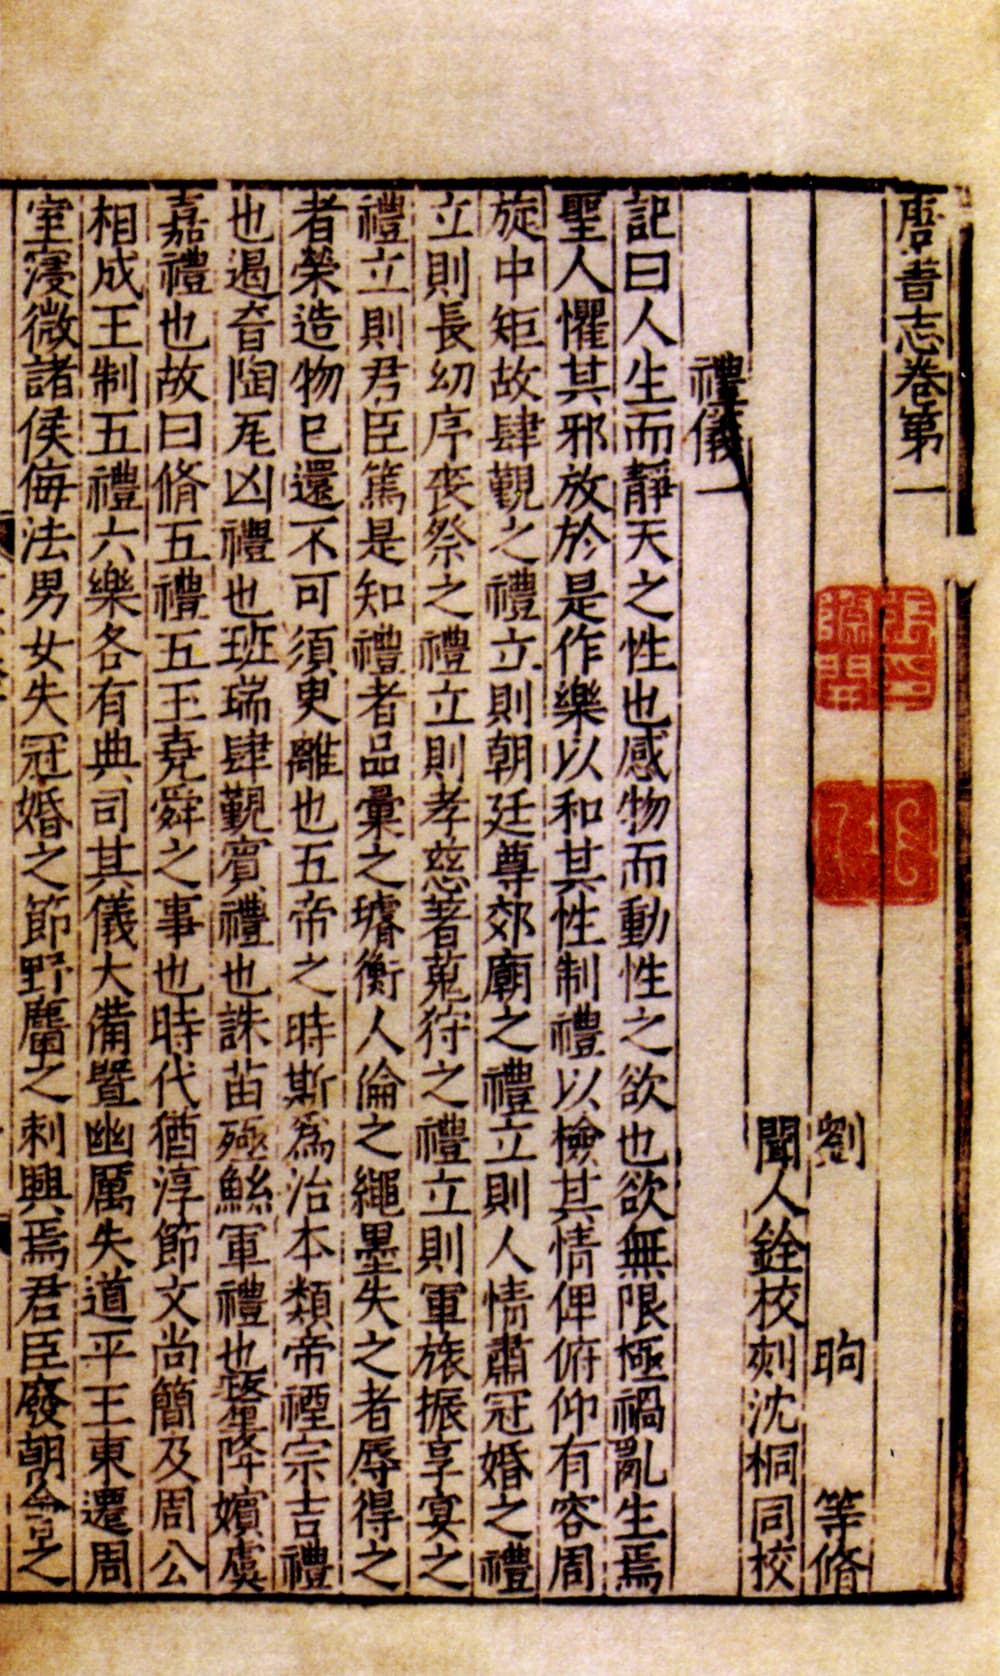 唐書志卷第一
劉昫等脩
聞人銓校刻沈桐同校
禮儀一
記曰人生而靜天之性也感物而動性之欲也欲無限極禍亂生焉
聖人懼其邪放於是作樂以和其性制禮以檢其情俾俯仰有容周
旋中矩故肆覲之禮立則朝廷尊郊廟之禮立則人情肅冠婚之禮
立則長幼序喪祭之禮立則孝慈著蒐狩之禮立則軍旅振享宴之
禮立則君臣篤是知禮者品彙之璿衡人倫之繩墨失之者辱得之
者榮造物已還不可須臾離也五帝之時斯爲治本類帝禋宗吉禮
也遏音陶㐌凶禮也班瑞肆覲賓禮也誅苗殛鯀軍禮也釐降嬪虞
嘉禮也故曰脩五禮五玉堯舜之事也時代猶淳節文尚簡及周公
相成王制五禮六樂各有典司其儀大備暨幽厲失道平王東遷周
室寖微諸侯侮法男女失冠婚之節野麕之刺興焉君臣廢朝會之